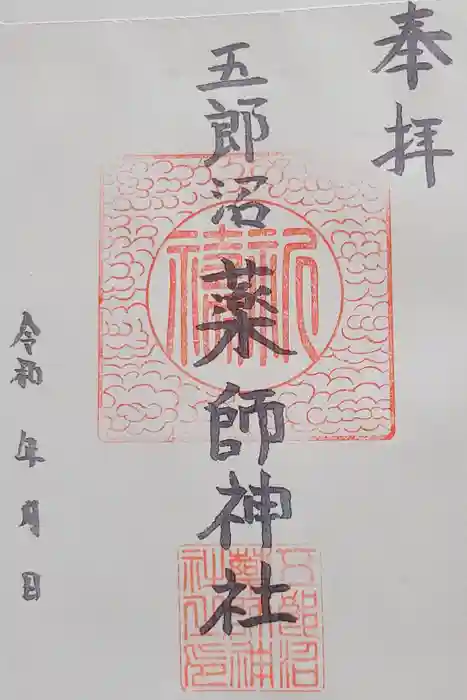 奉拝
五郎沼薬師神社
令和 年 月 日
五郎沼
薬師神
社之印